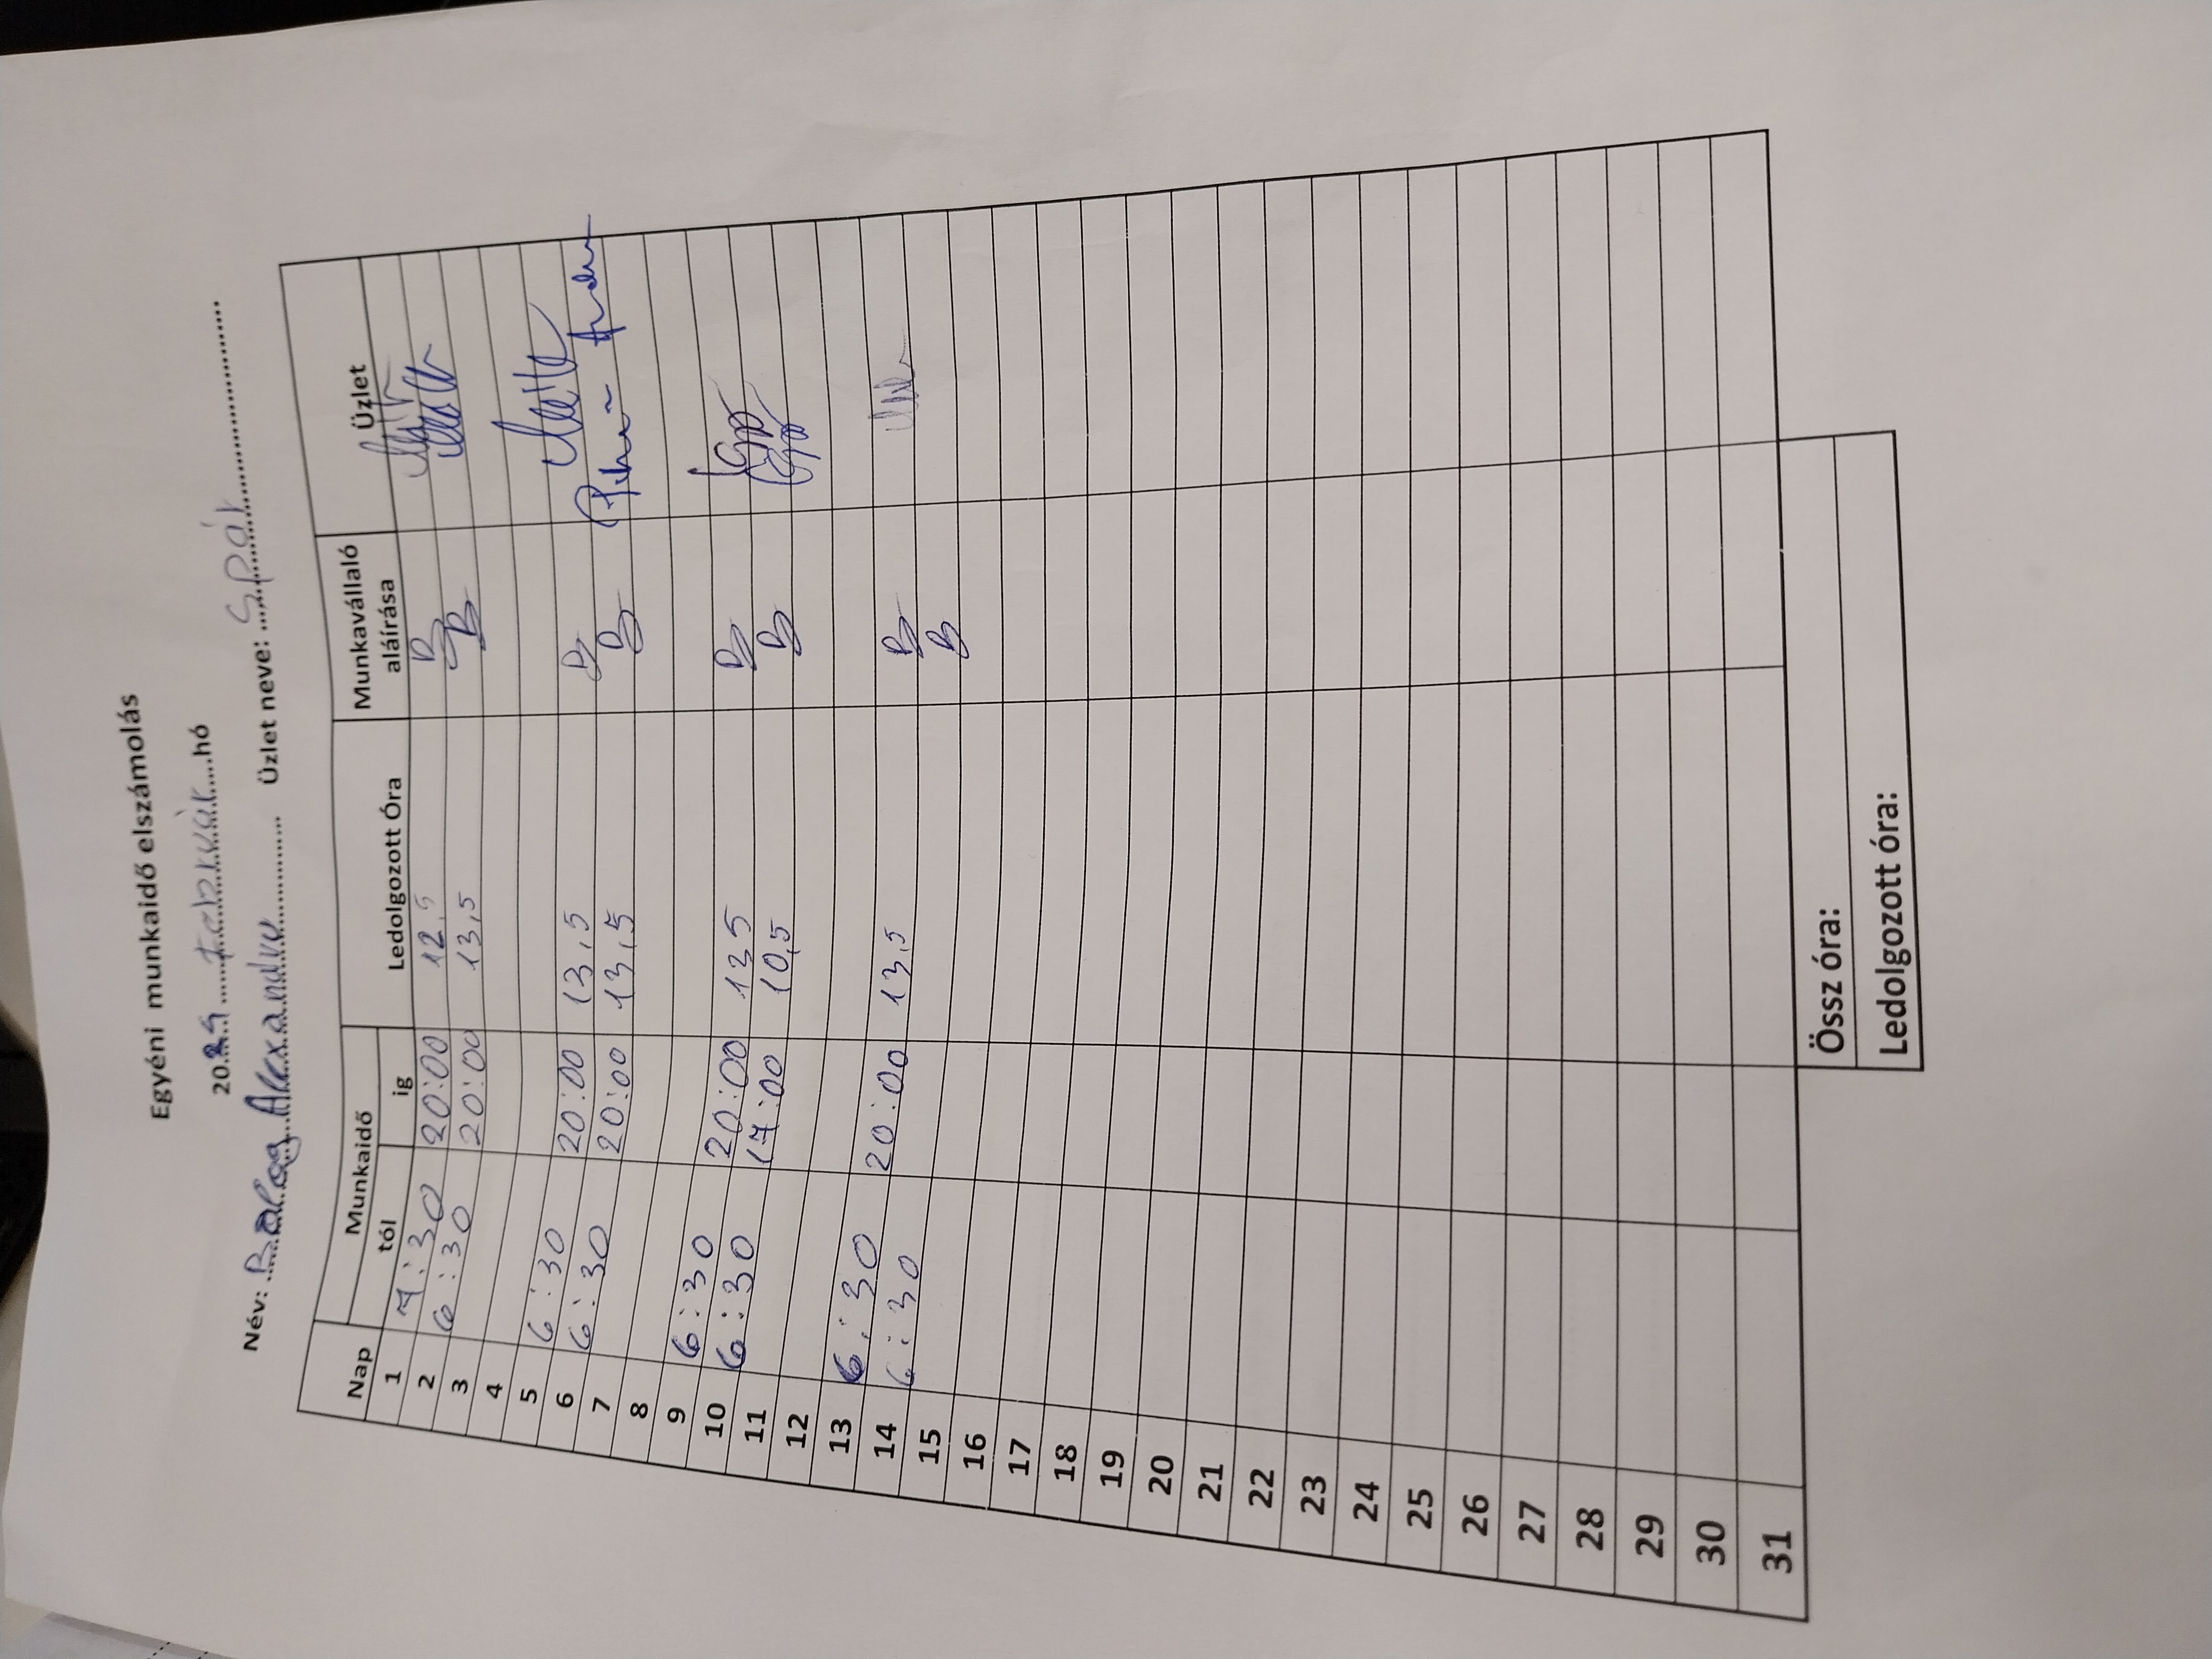 Egyéni munkaidő elszámolás
2024 Február hó
Név: Balog Alexandra Üzlet neve: Spár
Nap Munkaidő Ledolgozott Óra Munkavállaló aláírása Üzlet
tól ig
1 7:30 20:00 12,5 B
2 6:30 20:00 13,5 B
3
4
5 6:30 20:00 13,5 B
6 6:30 20:00 13,5 B
7
8
9 6:30 20:00 13,5 B
10 6:30 17:00 10,5 B
11
12
13 6:30 20:00 13,5 B
14 6:30 B
15
16
17
18
19
20
21
22
23
24
25
26
27
28
29
30
31
Össz óra:
Ledolgozott óra: